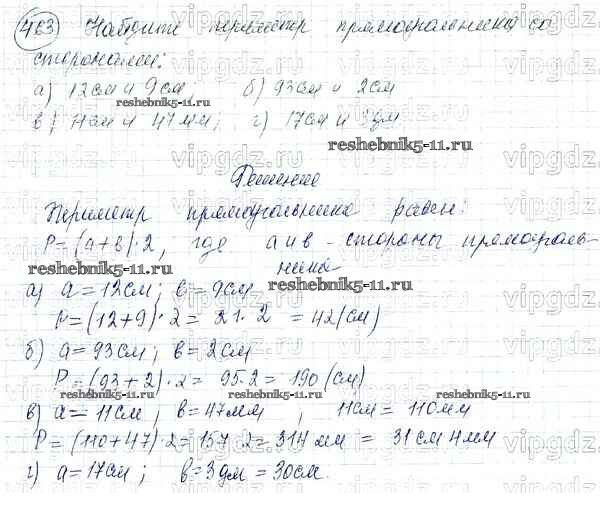 463 Найдите периметр прямоугольника со
сторонами:
а) 12см и 9см, б) 93см и 2см
в) 11см и 47мм; г) 17см и 3дм
reshebnik5-11.ru
reshebnik5-11.ru
Решение
Периметр прямоугольника равен:
P=(a+b)·2, где a и b - стороны прямоуголь-
ника
reshebnik5-11.ru
reshebnik5-11.ru
а) a=12см; b=9см
P=(12+9)·2= 21·2 =42(см)
б) a=93см; b=2см
P=(93+2)·2= 95·2=190(см)
reshebnik5-11.ru
reshebnik5-11.ru
в) a=11см, b=47мм, 11см=110мм
P=(110+47)·2=157·2=314мм = 31см 4мм
г) a=17см; b=3дм=30см.
vipgdz.ru